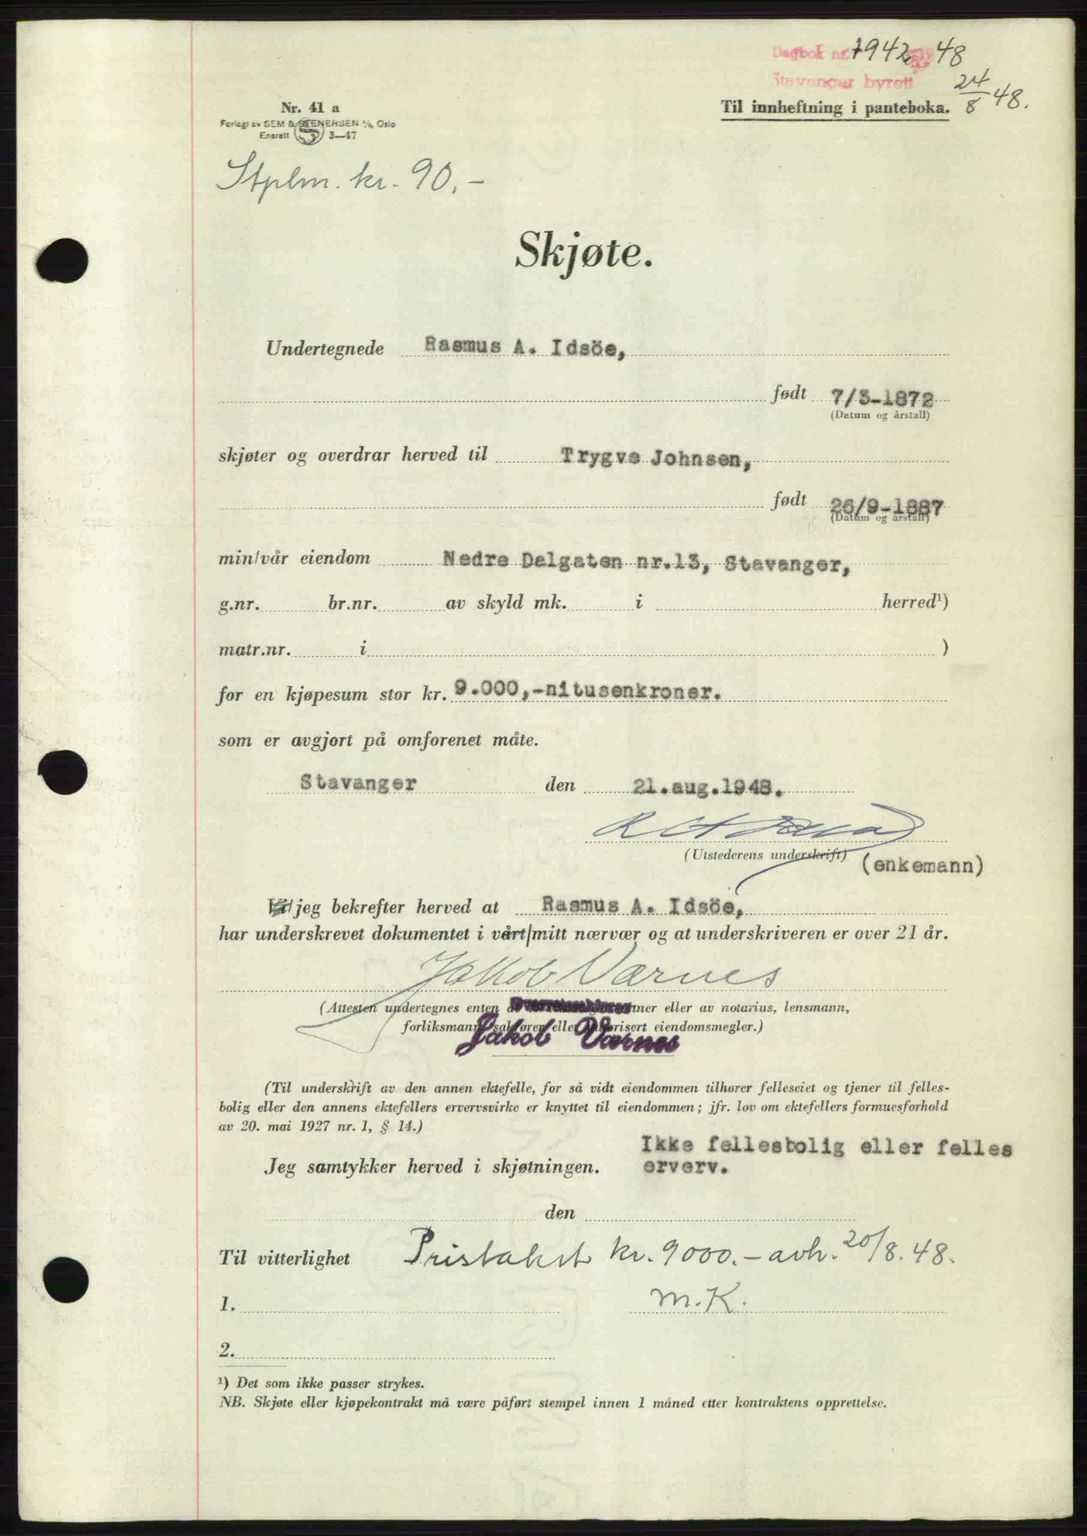 Dagbok nr. 1942 1948
Stavanger byrett 24/8 48.
Til innheftning i panteboka.
Nr. 41 a
Forlagt av SEM & STENERSEN A/S, Oslo
Enerett 3—47
Stplm. kr. 90,-
Skjøte.
Undertegnede Rasmus A. Idsöe,
født 7/3-1872
(Datum og årstall)
skjøter og overdrar herved til Trygve Johnsen,
født 26/9-1887
(Datum og årstall)
min/vår eiendom Nedre Dalgaten nr.13, Stavanger,
g.nr. br.nr. av skyld mk. i herred¹)
matr.nr. i )
for en kjøpesum stor kr. 9.000,-nitusenkroner.
som er avgjort på omforenet måte.
Stavanger den 21.aug.1948.
(Utstederens underskrift) (enkemann)
jeg bekrefter herved at Rasmus A. Idsöe,
har underskrevet dokumentet i vårt/mitt nærvær og at underskriveren er over 21 år.
JakobVærnes
(Attesten undertegnes enten av tner eller av notarius, lensmann,
forliksmann, sakfører eller autorisert eiendomsmegler.)
Overretssakfører
Jakob Værnes
(Til underskrift av den annen ektefelle, for så vidt eiendommen tilhører felleseiet og tjener til felles-
bolig eller den annens ektefellers ervervsvirke er knyttet til eiendommen; jfr. lov om ektefellers formuesforhold
av 20. mai 1927 nr. 1, § 14.)
Ikke fellesbolig eller felles
Jeg samtykker herved i skjøtningen. erverv.
den
Til vitterlighet Pristakst kr. 9000.- avh. 20/8.48.
1. M.K.
2.
¹) Det som ikke passer strykes.
NB. Skjøte eller kjøpekontrakt må være påført stempel innen 1 måned etter kontraktens opprettelse.